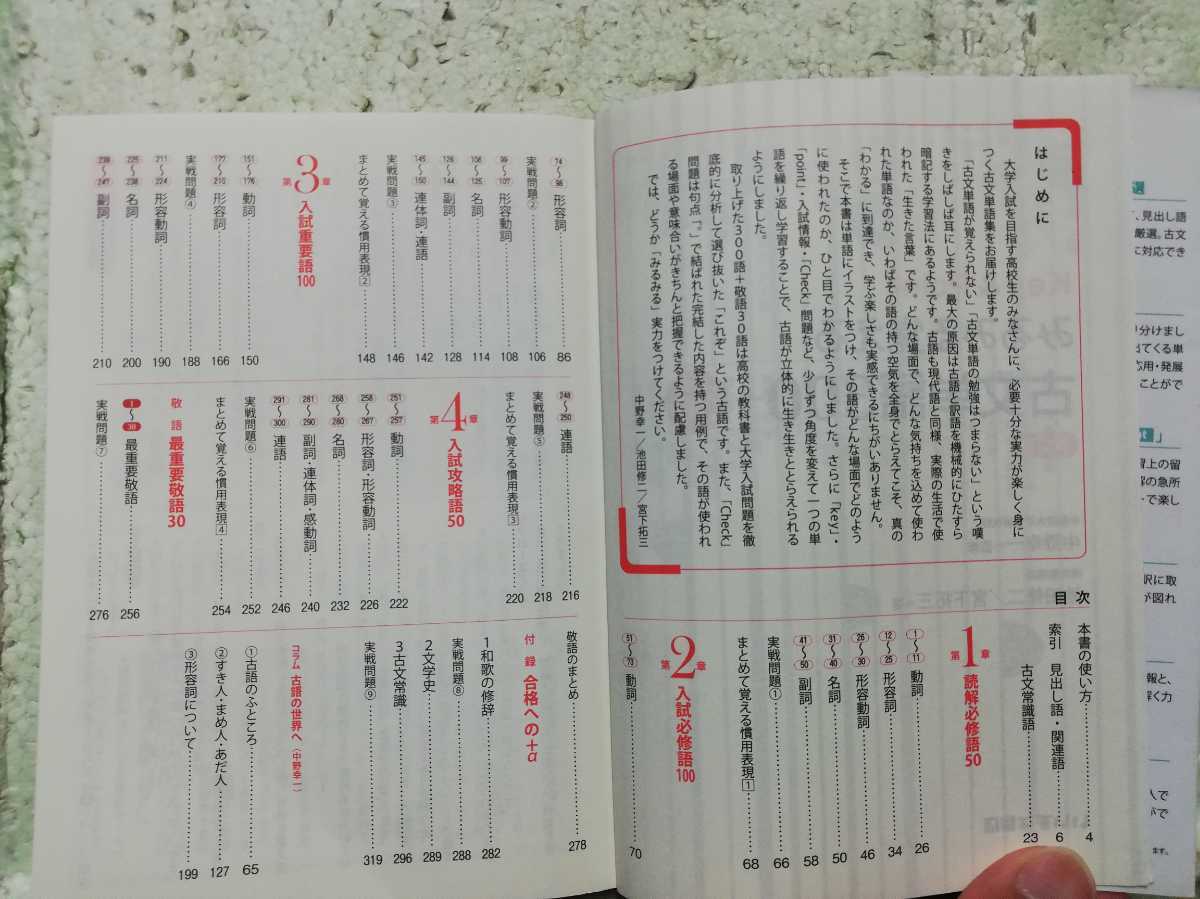 はじめに
大学入試を目指す高校生のみなさんに、必要十分な実力が楽しく身に
つく古文単語集をお届けします。
「古文単語が覚えられない」「古文単語の勉強はつまらない」という嘆
きをしばしば耳にします。最大の原因は古語と訳語を機械的にひたすら
暗記する学習法にあるようです。古語も現代語と同様、実際の生活で使
われた「生きた言葉」です。どんな場面で、どんな気持ちを込めて使わ
れた単語なのか、いわばその語の持つ空気を全身でとらえてこそ、真の
「わかる」に到達でき、学ぶ楽しさも実感できるにちがいありません。
そこで本書は単語にイラストをつけ、その語がどんな場面でどのよう
に使われたのか、ひと目でわかるようにしました。さらに「key」・
「point」・入試情報・「Check」問題など、少しずつ角度を変えて一つの単
語を繰り返し学習することで、古語が立体的に生き生きととらえられる
ようにしました。
取り上げた300語＋敬語30語は高校の教科書と大学入試問題を徹
底的に分析して選び抜いた「これぞ」という古語です。また、「Check」
問題は句点「。」で結ばれた完結した内容を持つ用例で、その語が使われ
る場面や意味合いがきちんと把握できるように配慮しました。
では、どうか「みるみる」実力をつけてください。
中野幸一／池田修二／宮下拓三
目次
本書の使い方 4
索引 見出し語・関連語 6
古文常識語 23
第1章 読解必修語50
1〜11 動詞 26
12〜25 形容詞 34
26〜30 形容動詞 46
31〜40 名詞 50
41〜50 副詞 58
実戦問題① 66
まとめて覚える慣用表現1 68
第2章 入試必修語100
51〜73 動詞 70
74〜98 形容詞 86
実戦問題② 106
99〜107 形容動詞 108
108〜125 名詞 114
126〜144 副詞 128
145〜150 連体詞・連語 142
実戦問題③ 146
まとめて覚える慣用表現2 148
第3章 入試重要語100
151〜176 動詞 150
177〜210 形容詞 166
実戦問題④ 188
211〜224 形容動詞 190
225〜238 名詞 200
239〜247 副詞 210
248〜250 連語 216
実戦問題⑤ 218
まとめて覚える慣用表現3 220
第4章 入試攻略語50
251〜257 動詞 222
258〜267 形容詞・形容動詞 226
268〜280 名詞 232
281〜290 副詞・連体詞・感動詞 240
291〜300 連語 246
実戦問題⑥ 252
まとめて覚える慣用表現4 254
敬語 最重要敬語30
1〜30 最重要敬語 256
実戦問題⑦ 276
敬語のまとめ 278
付録 合格への＋α
1 和歌の修辞 282
実戦問題⑧ 288
2 文学史 289
3 古文常識 296
実戦問題⑨ 319
コラム 古語の世界へ（中野幸一）
①古語のふところ 65
②すき人・まめ人・あだ人 127
③形容詞について 199